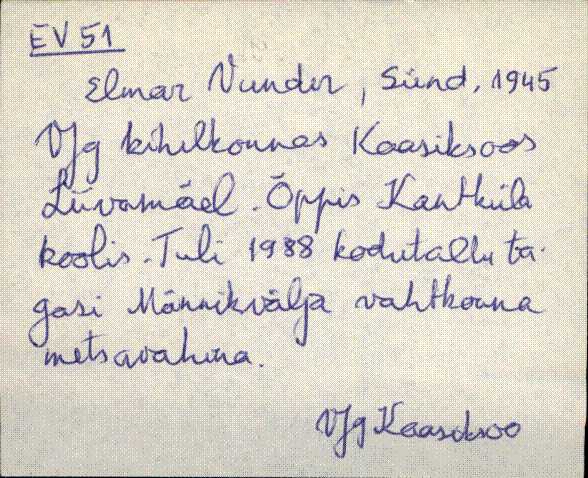 EV 51
Elmar Vunder, Sünd. 1945
VJg kihelkonnas Kaasiksoos
Liivamäel. Õppis Kantküla
koolis. Tuli 1988 kodutallu ta-
gasi Männikvälja vahtkonna
metsavahina.
VJg Kaasiksoo